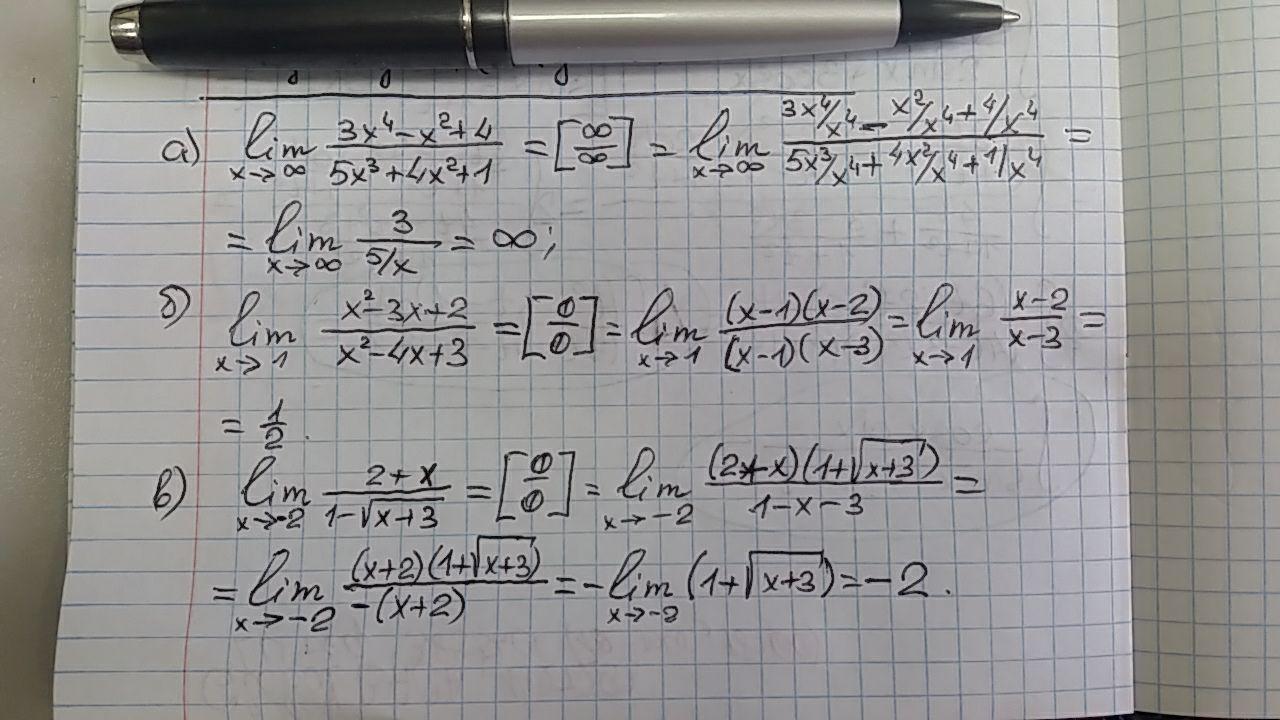 а) lim x→∞ (3x⁴-x²+4)/(5x³+4x²+1) = [∞/∞] = lim x→∞ (3x⁴/x⁴ - x²/x⁴ + 4/x⁴)/(5x³/x⁴ + 4x²/x⁴ + 1/x⁴) =
= lim x→∞ 3/(5/x) = ∞;
б) lim x→1 (x²-3x+2)/(x²-4x+3) = [0/0] = lim x→1 (x-1)(x-2)/(x-1)(x-3) = lim x→1 (x-2)/(x-3) =
= 1/2.
в) lim x→-2 (2+x)/(1-√(x+3)) = [0/0] = lim x→-2 (2+x)(1+√(x+3))/(1-x-3) =
= lim x→-2 (x+2)(1+√(x+3))/(-(x+2)) = - lim x→-2 (1+√(x+3)) = -2.